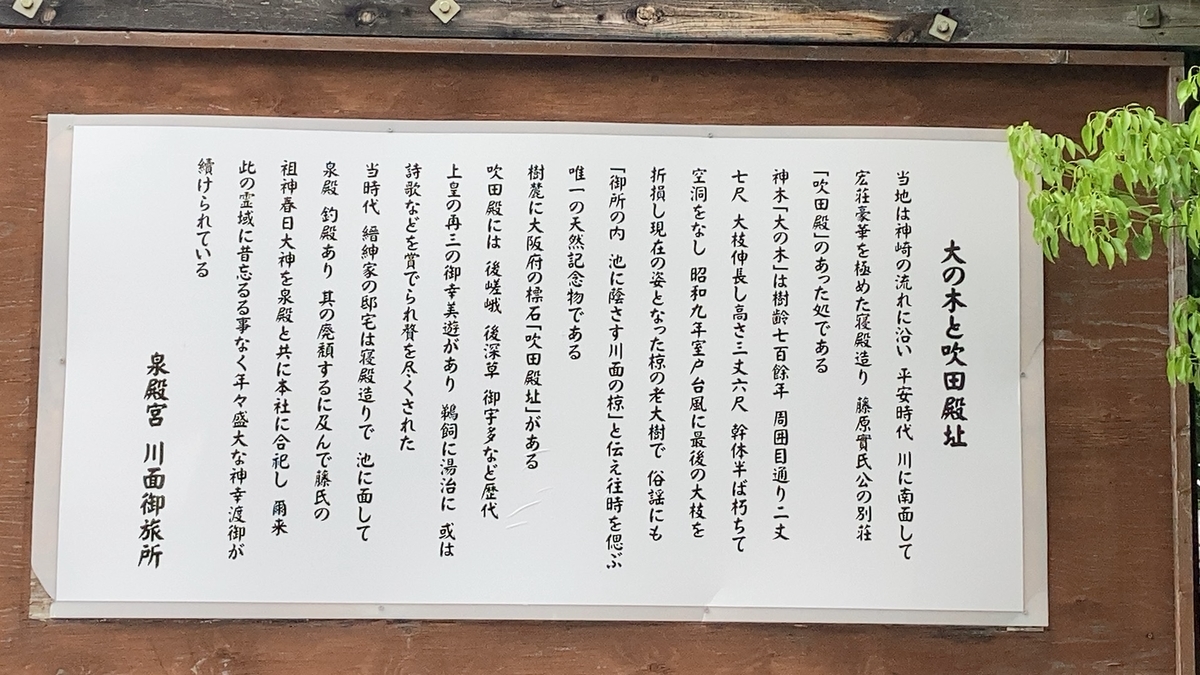 大の木と吹田殿址
当地は神崎の流れに沿い 平安時代 川に南面して
宏荘豪華を極めた寝殿造り 藤原實氏公の別荘
「吹田殿」のあった処である
神木「大の木」は樹齢七百餘年 周囲目通り二丈
七尺 大枝伸長し高さ三丈六尺 幹体半ば朽ちて
空洞をなし 昭和九年室戸台風に最後の大枝を
折損し現在の姿となった椋の老大樹で 俗謡にも
「御所の内 池に陰さす川面の椋」と伝え往時を偲ぶ
唯一の天然記念物である
樹麓に大阪府の標石「吹田殿址」がある
吹田殿には 後嵯峨 後深草 御宇多など歴代
上皇の再三の御幸美遊があり 鵜飼に湯治に 或は
詩歌などを賞でられ贅を尽くされた
当時代 縉紳家の邸宅は寝殿造りで 池に面して
泉殿 釣殿あり 其の廃頽するに及んで藤氏の
祖神春日大神を泉殿と共に本社に合祀し 爾来
此の霊域に昔忘るる事なく年々盛大な神幸渡御が
續けられている
泉殿宮 川面御旅所